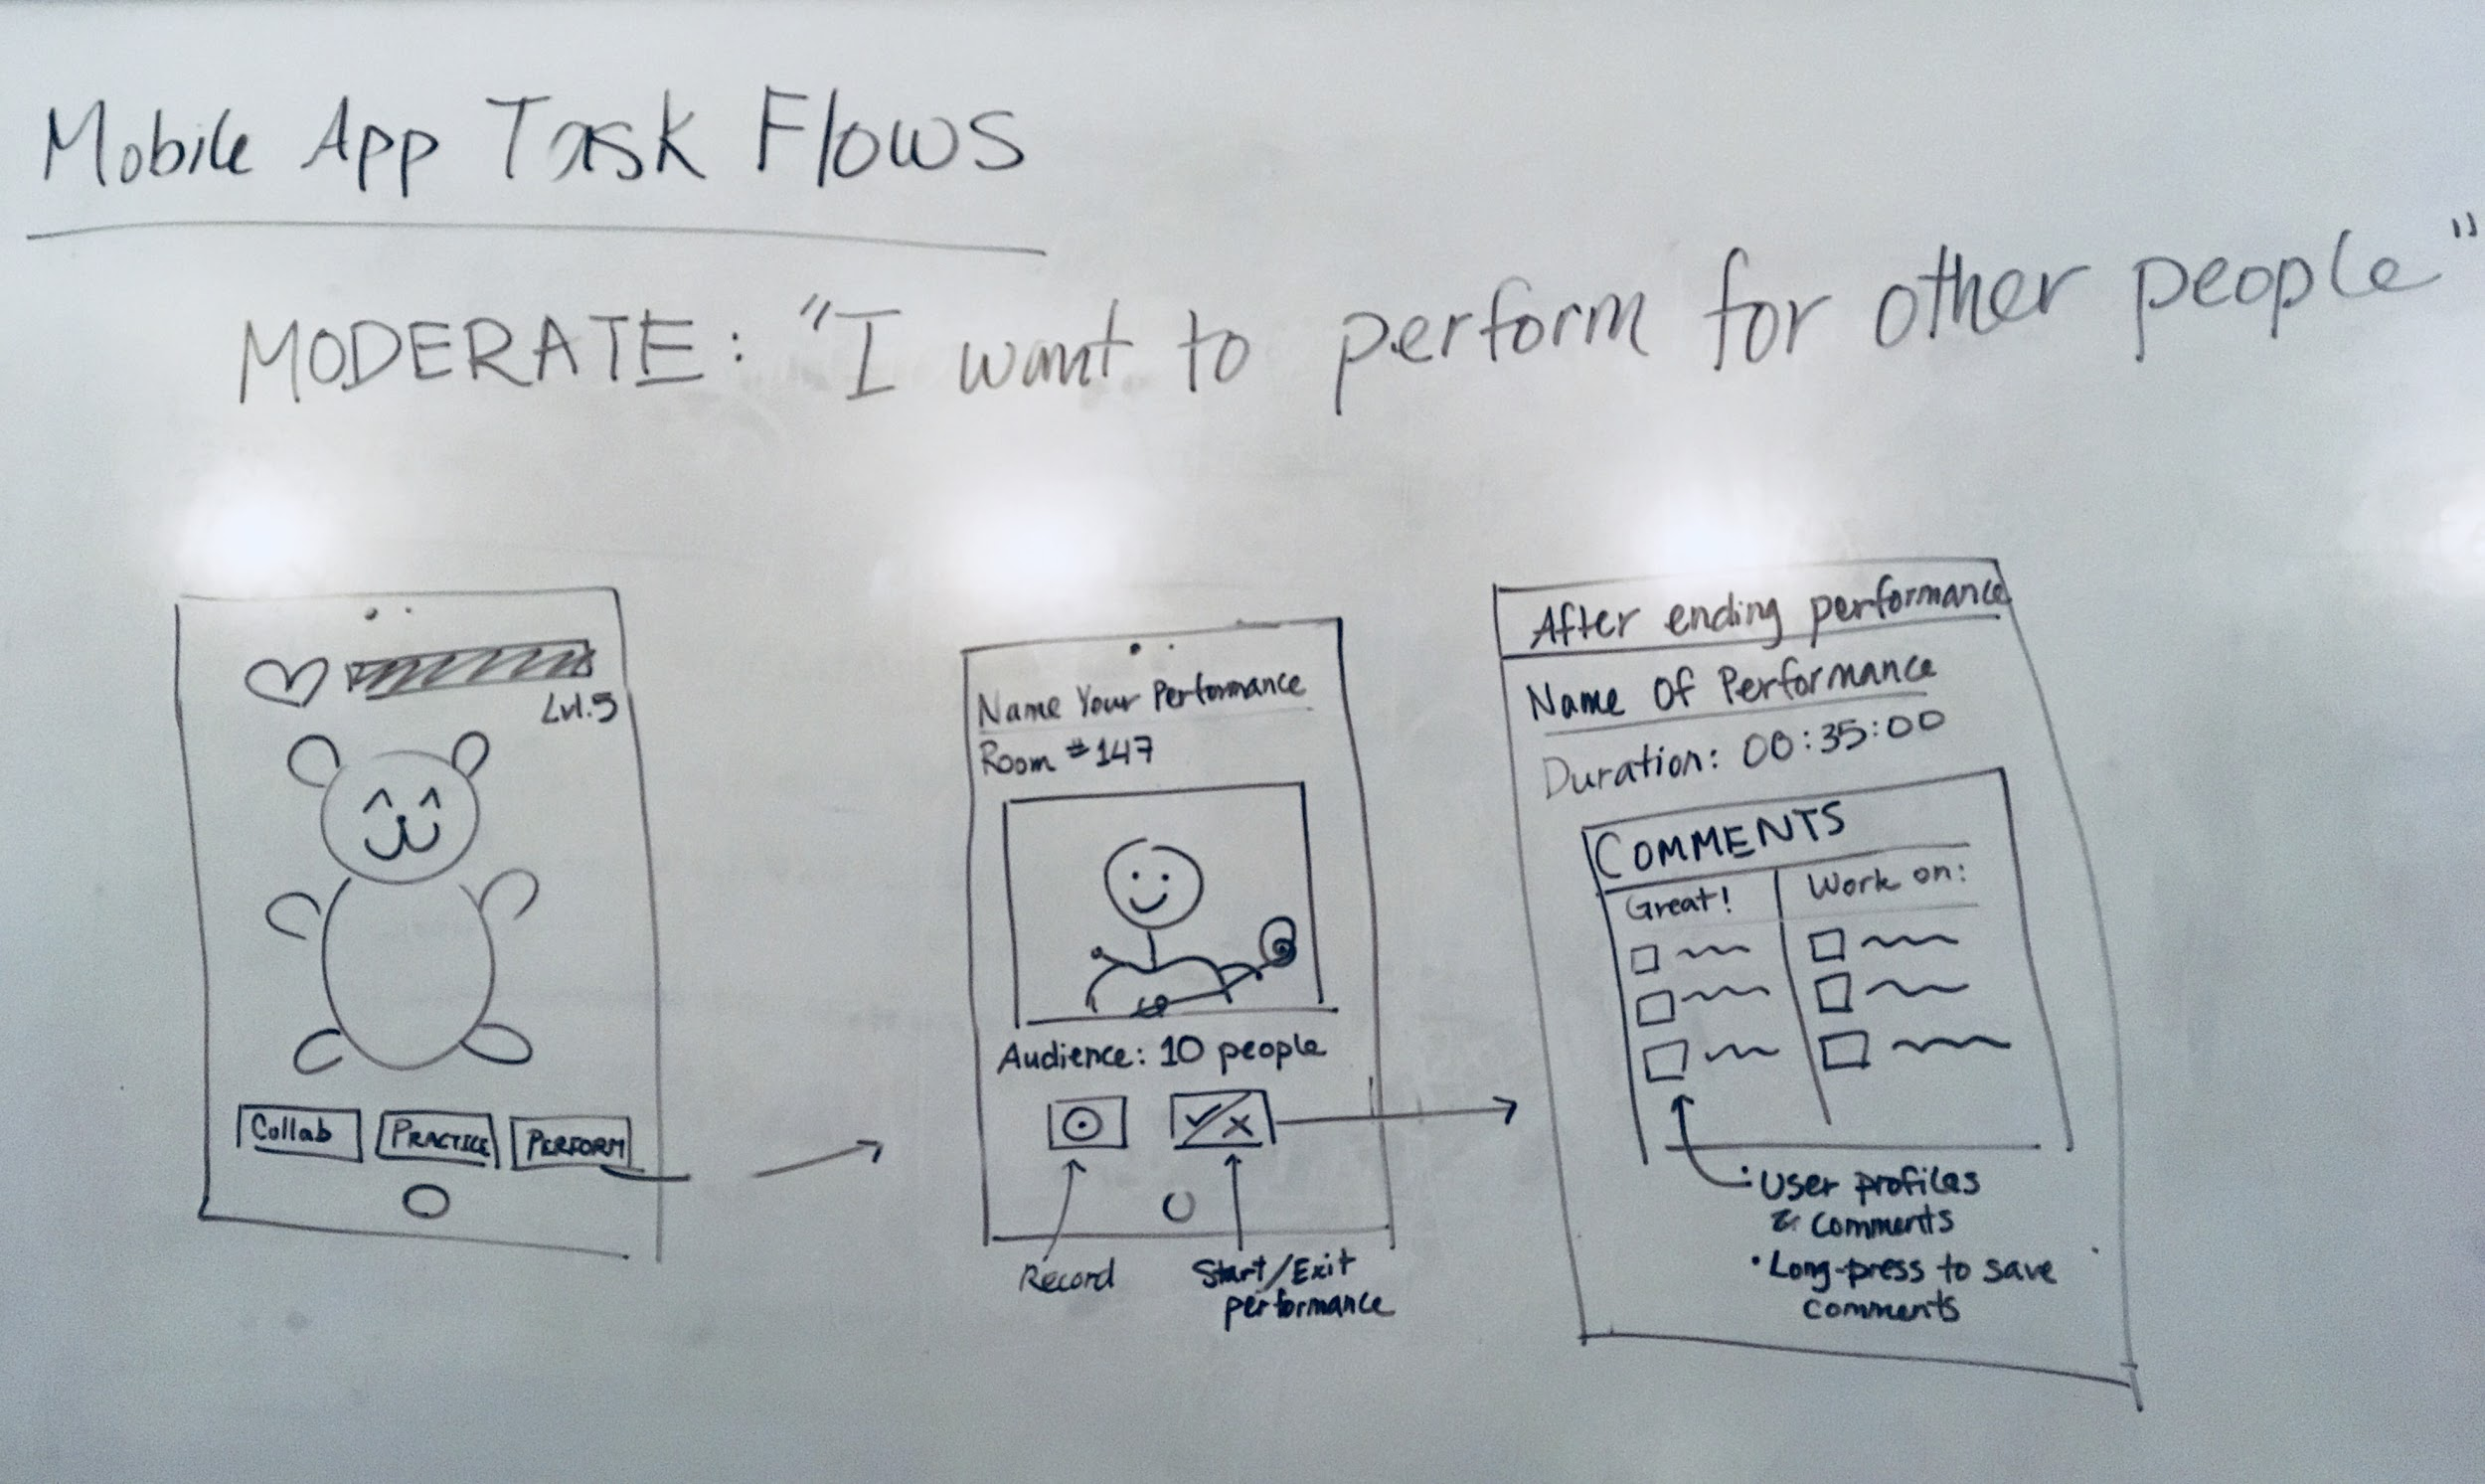 Mobile App Task Flows
MODERATE: "I want to perform for other people"
Lvl.5
Collab
PRACTICE
PERFORM
Name Your Performance
Room #147
Audience: 10 people
Record
Start/Exit
performance
After ending performance
Name Of Performance
Duration: 00:35:00
COMMENTS
Great!
Work on:
• User profiles
& comments
• Long-press to save
comments